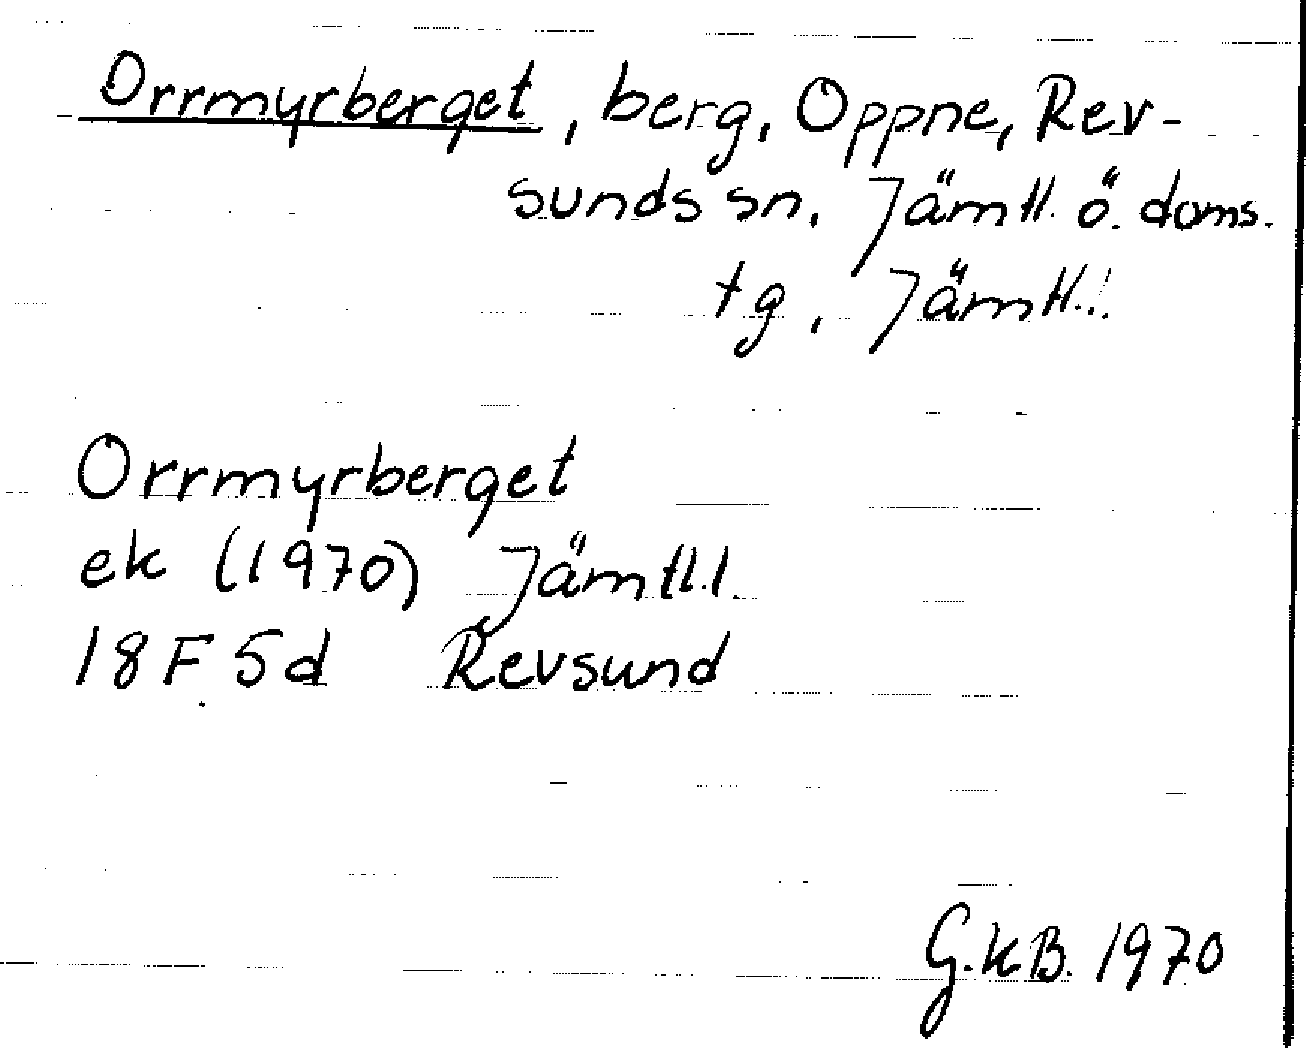 Orrmyrberget, berg, Oppne, Rev-
sunds sn, Jämtl. ö. doms.
tg, Jämtl.l.
Orrmyrberget
ek (1970) Jämtl.l.
18F 5d Revsund
G.KB. 1970